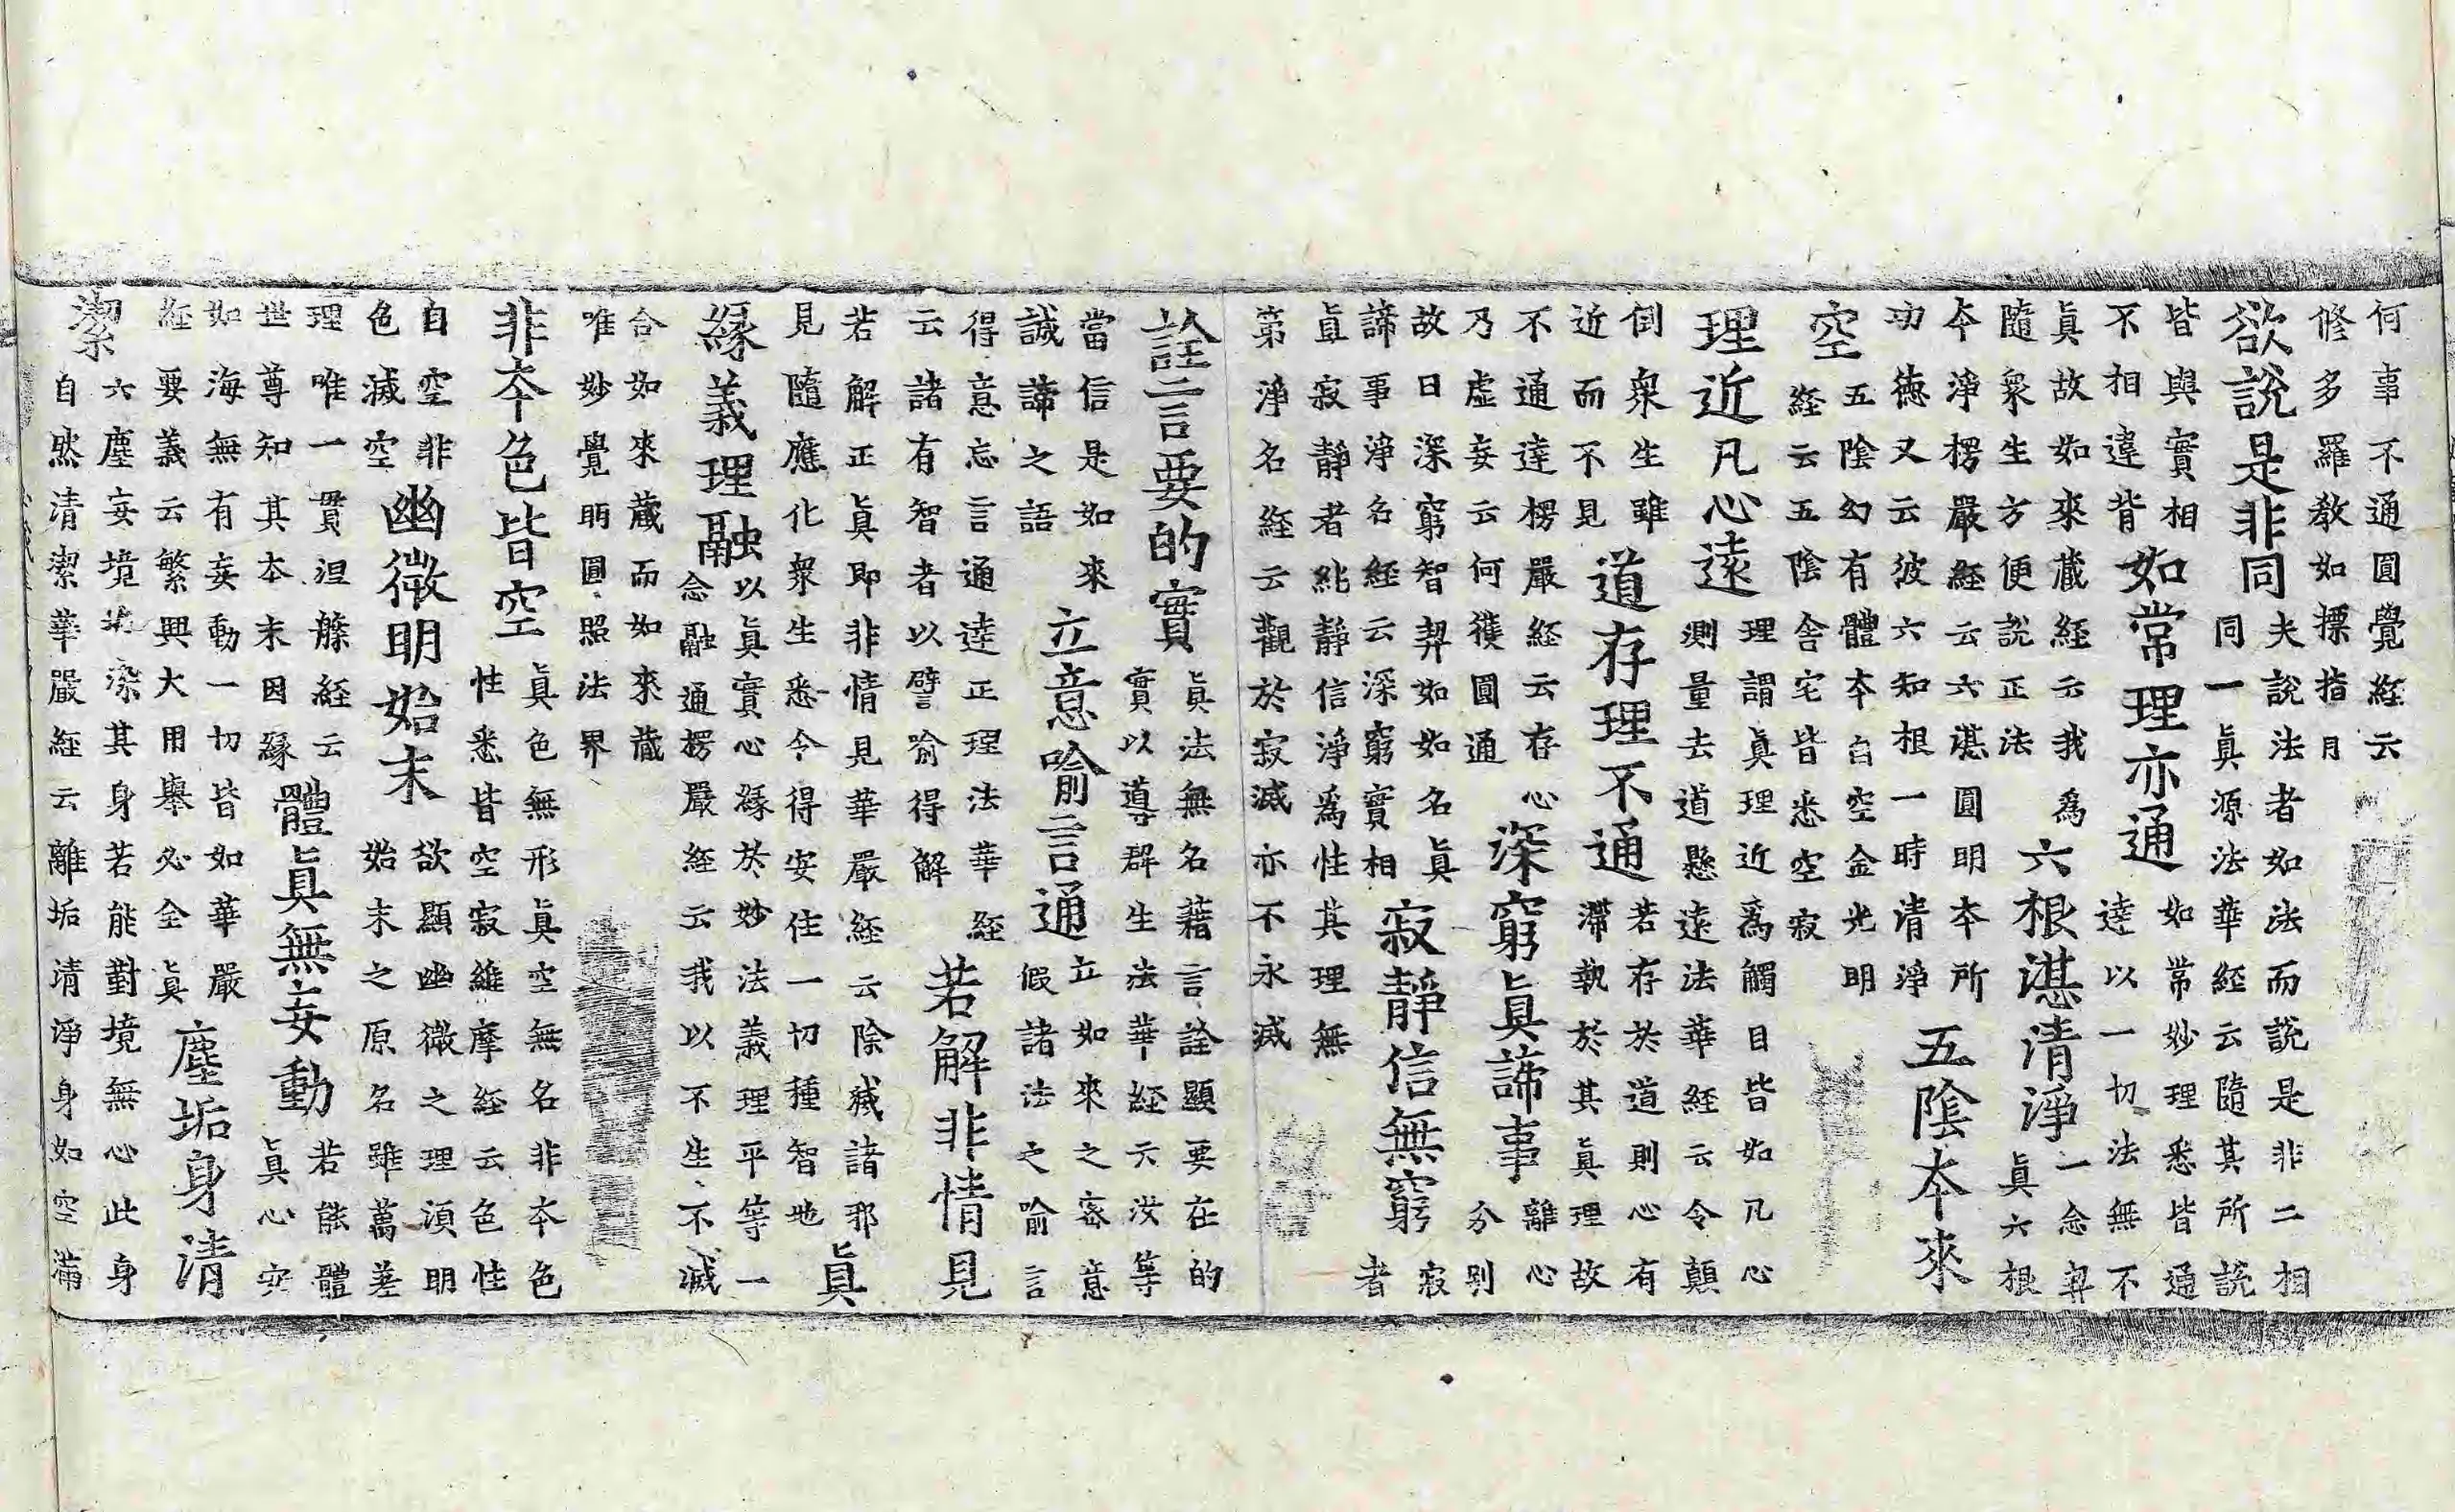 何事不通圓覺經云
修多羅教如摽指月
欲說是非同
夫說法者如法而說是非二相
同一眞源法華經云隨其所說
皆與實相
不相違背
如常理亦通
如常妙理悉皆通
達以一切法無不
眞故如來藏經云我爲
隨衆生方便說正法
六根湛清淨
一念契
眞六根
本淨楞嚴經云六湛圓明本所
功德又云彼六知根一時清淨
五陰本來
空
五陰幻有體本自空金光明
經云五陰舍宅皆悉空寂
理近凡心遠
理謂眞理近爲觸目皆如凡心
測量去道懸遠法華經云令顛
倒衆生雖
近而不見
道存理不通
若存於道則心有
滯執於其眞理故
不通達楞嚴經云存心
乃虛妄云何獲圓通
深窮眞諦事
離心
分別
故曰深窮智契如如名眞
諦事淨名經云深窮實相
寂靜信無窮
寂
者
眞寂靜者能靜信淨爲性其理無
第淨名經云觀於寂滅亦不永滅
詮言要的實
眞法無名藉言詮顯要在的
實以導群生法華經云汝等
當信是如來
誠諦之語
立意喻言通
立如來之密意
假諸法之喻言
得意忘言通達正理法華經
云諸有智者以譬喻得解
若解非情見
若解正眞即非情見華嚴經云除滅諸邪
見隨應化衆生悉令得安住一切種智地
眞
緣義理融
以眞實心緣於妙法義理平等一
念融通楞嚴經云我以不生不滅
合如來藏而如來藏
唯妙覺明圓照法界
非本色皆空
眞色無形眞空無名非本色
性悉皆空寂維摩經云色性
自空非
色滅空
幽微明始末
欲顯幽微之理須明
始末之原名雖萬差
理唯一貫涅槃經云
世尊知其本末因緣
體眞無妄動
若能體
眞心安
如海無有妄動一切皆如華嚴
經要義云繁興大用舉必全眞
塵垢身清
潔
六塵妄境染其身若能對境無心此身
自然清潔華嚴經云離垢清淨身如空滿